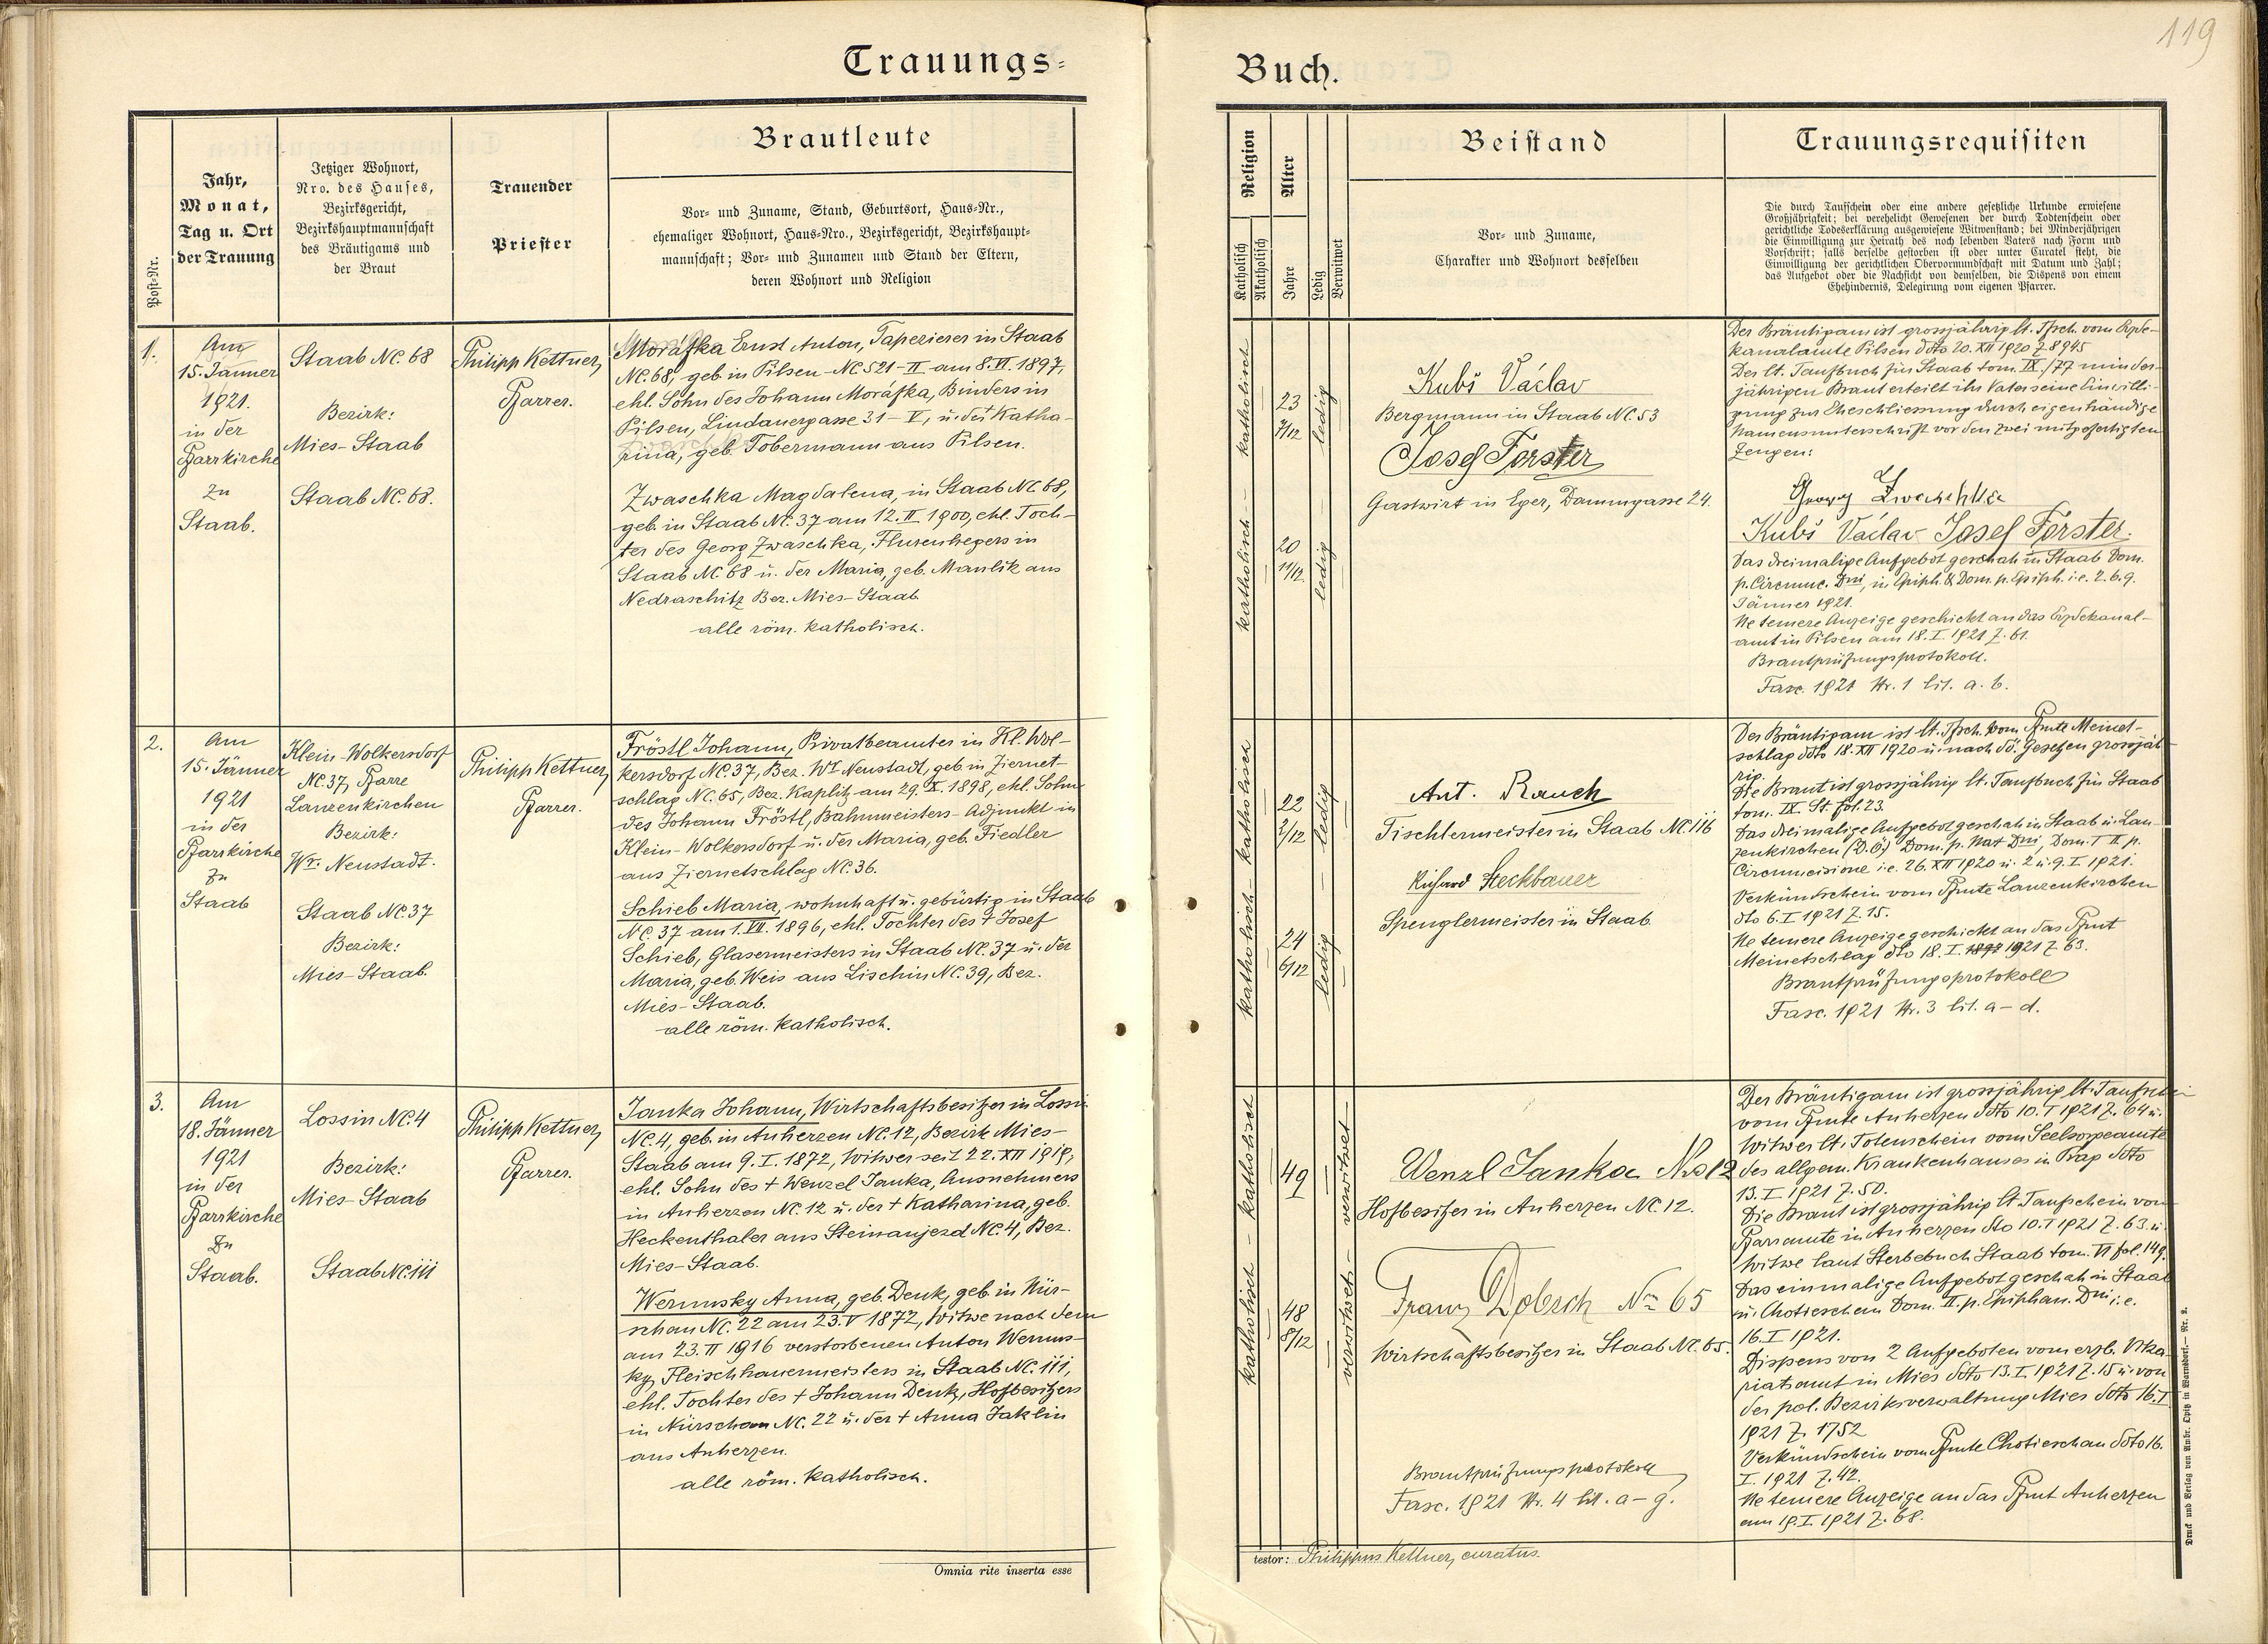 119
Trauungs-
Buch.
Post-Nr.
Jahr,
Monat,
Tag u. Ort
der Trauung
Jetziger Wohnort,
Nro. des Hauses,
Bezirksgericht,
Bezirkshauptmannschaft
des Bräutigams und
der Braut
Trauender
Priester
Brautleute
Vor- und Zuname, Stand, Geburtsort, Haus-Nr.,
ehemaliger Wohnort, Haus-Nro., Bezirksgericht, Bezirkshaupt-
mannschaft; Vor- und Zunamen und Stand der Eltern,
deren Wohnort und Religion
Religion
Katholisch
Akatholisch
Alter
Jahre
Ledig
Verwitwet
Beistand
Vor- und Zuname,
Charakter und Wohnort desselben
Trauungsrequisiten
Die durch Taufschein oder eine andere gesetzliche Urkunde erwiesene
Großjährigkeit; bei verehelicht Gewesenen der durch Todtenschein oder
gerichtliche Todeserklärung ausgewiesene Witwenstand; bei Minderjährigen
die Einwilligung zur Heirath des noch lebenden Vaters nach Form und
Vorschrift; falls derselbe gestorben ist oder unter Curatel steht, die
Einwilligung der gerichtlichen Obervormundschaft mit Datum und Zahl;
das Aufgebot oder die Nachsicht von demselben, die Dispens von einem
Ehehindernis, Delegirung vom eigenen Pfarrer.
1.
Am
15. Jänner
1921.
in der
Pfarrkirche
zu
Staab.
Staab NC. 68
Bezirk:
Mies-Staab
Staab NC. 68.
Philipp Kettner,
Pfarrer.
Moráfka Ernst Anton, Tapezierer in Staab
NC. 68, geb. in Pilsen - NC 521 - II am 8. VI. 1897,
ehl. Sohn des Johann Moráfka, Binders in
Pilsen, Lindauergasse 31 - V, u. der Katha-
rina, geb. Tobermann aus Pilsen.
Zwaschka Magdalena, in Staab NC. 68,
geb. in Staab NC. 37 am 12. II 1900, ehl. Toch-
ter des Georg Zwaschka, Flurenhegers in
Staab NC. 68 u. der Maria, geb. Maulik aus
Nedraschitz Bez. Mies-Staab.
alle röm. katholisch.
katholisch - katholisch
23
7/12
20
11/12
ledig - ledig
Kubš Václav
Bergmann in Staab NC. 53
Josef Forster
Gastwirt in Eger, Dammgasse 24.
Der Bräutigam ist grossjährig lt. Tfsch. vom Erzde-
kanalamte Pilsen ddto 20. XII 1920 Z. 8945
Der lt. Taufbuch für Staab tom. IX./77 minder-
jährigen Braut erteilt ihr Vater seine Einwilli-
gung zur Eheschliessung durch eigenhändige
Namensunterschrift vor den zwei mitgefertigten
Zeugen:
Georg Zwaschka
Kubš Václav Josef Forster.
Das dreimalige Aufgebot geschah in Staab Dom.
p. Circumc. Dni, in Epiph. & Dom. p. Epiph. i. e. 2. 6. 9.
Jänner 1921.
Ne temere Anzeige geschickt an das Erzdekanal-
amt in Pilsen am 18. I. 1921 Z. 61.
Brautprüfungsprotokoll.
Fasc. 1921 Nr. 1 lit. a. b.
2.
Am
15. Jänner
1921
in der
Pfarrkirche
zu
Staab
Klein-Wolkersdorf
NC. 37, Pfarre
Lanzenkirchen
Bezirk:
Wr. Neustadt.
Staab NC. 37
Bezirk:
Mies-Staab.
Philipp Kettner,
Pfarrer.
Fröstl Johann, Privatbeamter in Kl. Wol-
kersdorf NC. 37, Bez. Wr. Neustadt, geb. in Ziernet-
schlag NC. 65, Bez. Kaplitz am 29. X. 1898, ehl. Sohn
des Johann Fröstl, Bahnmeisters-Adjunkt in
Klein-Wolkersdorf u. der Maria, geb. Fiedler
aus Ziernetschlag NC. 36.
Schieb Maria, wohnhaft u. gebürtig in Staab
NC. 37 am 1. VII. 1896, ehl. Tochter des + Josef
Schieb, Glasermeisters in Staab NC. 37 u. der
Maria, geb. Weis aus Lischin NC. 39, Bez.
Mies-Staab.
alle röm. katholisch.
katholisch - katholisch
22
2/12
24
6/12
ledig - ledig
Ant. Rauch
Tischlermeister in Staab NC. 116
Richard Steckbauer
Spenglermeister in Staab.
Der Bräutigam ist lt. Tfsch. vom Pfmte Meinet-
schlag ddto 18. XII 1920 u. nach dö. Gesetzen grossjäh-
rig.
Die Braut ist grossjährig lt. Taufbuch für Staab
tom. IX. St. fol. 23.
Das dreimalige Aufgebot geschah in Staab u. Lan-
zenkirchen (D. Ö.) Dom. p. Nat Dni, Dom. I II p.
Circumcisione i. e. 26. XII 1920 u. 2. u. 9. I. 1921.
Verkündschein vom Pfmte Lanzenkirchen
dto 6. I 1921 Z. 15.
Ne temere Anzeige geschickt an das Pfmt
Meinetschlag dto 18. I. 1921 Z. 63.
Brautprüfungsprotokoll
Fasc. 1921 Nr. 3 lit. a - d.
3.
Am
18. Jänner
1921
in der
Pfarrkirche
zu
Staab.
Lossin NC. 4
Bezirk:
Mies-Staab
Staab NC. 111
Philipp Kettner,
Pfarrer.
Janka Johann, Wirtschaftsbesitzer in Lossin
NC. 4, geb. in Auherzen NC. 12, Bezirk Mies-
Staab am 9. I. 1872, Witwer seit 22. XII 1919,
ehl. Sohn des + Wenzel Janka, Ausnehmers
in Auherzen NC. 12 u. der + Katharina, geb.
Heckenthaler aus Steinaujezd NC. 4, Bez.
Mies-Staab.
Werunsky Anna, geb. Denk, geb. in Nür-
schan NC. 22 am 23. V 1872, Witwe nach dem
am 23. II 1916 verstorbenen Anton Weruns-
ky, Fleischhauermeisters in Staab NC. 111,
ehl. Tochter des + Johann Denk, Hofbesitzers
in Nürschan NC. 22 u. der + Anna Jaklin
aus Auherzen.
alle röm. katholisch.
katholisch - katholisch
49
48
8/12
verwitwet - verwitwet
Wenzl Janka Nro 12
Hofbesitzer in Auherzen NC. 12.
Franz Dobsch No 65
Wirtschaftsbesitzer in Staab NC. 65.
Brautprüfungsprotokoll
Fasc. 1921 Nr. 4 lit. a - g.
Der Bräutigam ist grossjährig lt. Taufschein
vom Pfmte Auherzen ddto 10. I 1921 Z. 64 u.
Witwer lt. Totenschein vom Seelsorgeamte
des allgem. Krankenhauses in Prag ddto
13. I 1921 Z. 50.
Die Braut ist grossjährig lt. Taufschein vom
Pfarramte in Auherzen dto 10. I 1921 Z. 63. u.
Witwe laut Sterbebuch Staab tom. VI fol. 149.
Das einmalige Aufgebot geschah in Staab
u. Chotieschau Dom. II. p. Epiphan. Dni i. e.
16. I 1921.
Dispens von 2 Aufgeboten vom erzb. Vika-
riatsamt in Mies ddto 13. I. 1921 Z. 15 u. von
der pol. Bezirksverwaltung Mies ddto 16. I
1921 Z. 1752
Verkündschein vom Pfmte Chotieschau ddto 16.
I. 1921 Z. 42.
Ne temere Anzeige an das Pfmt Auherzen
am 19. I. 1921 Z. 68.
Omnia rite inserta esse
testor: Philippus Kettner, curatus.
Druck und Verlag von Ambr. Opitz in Warnsdorf. — Nr. 2.